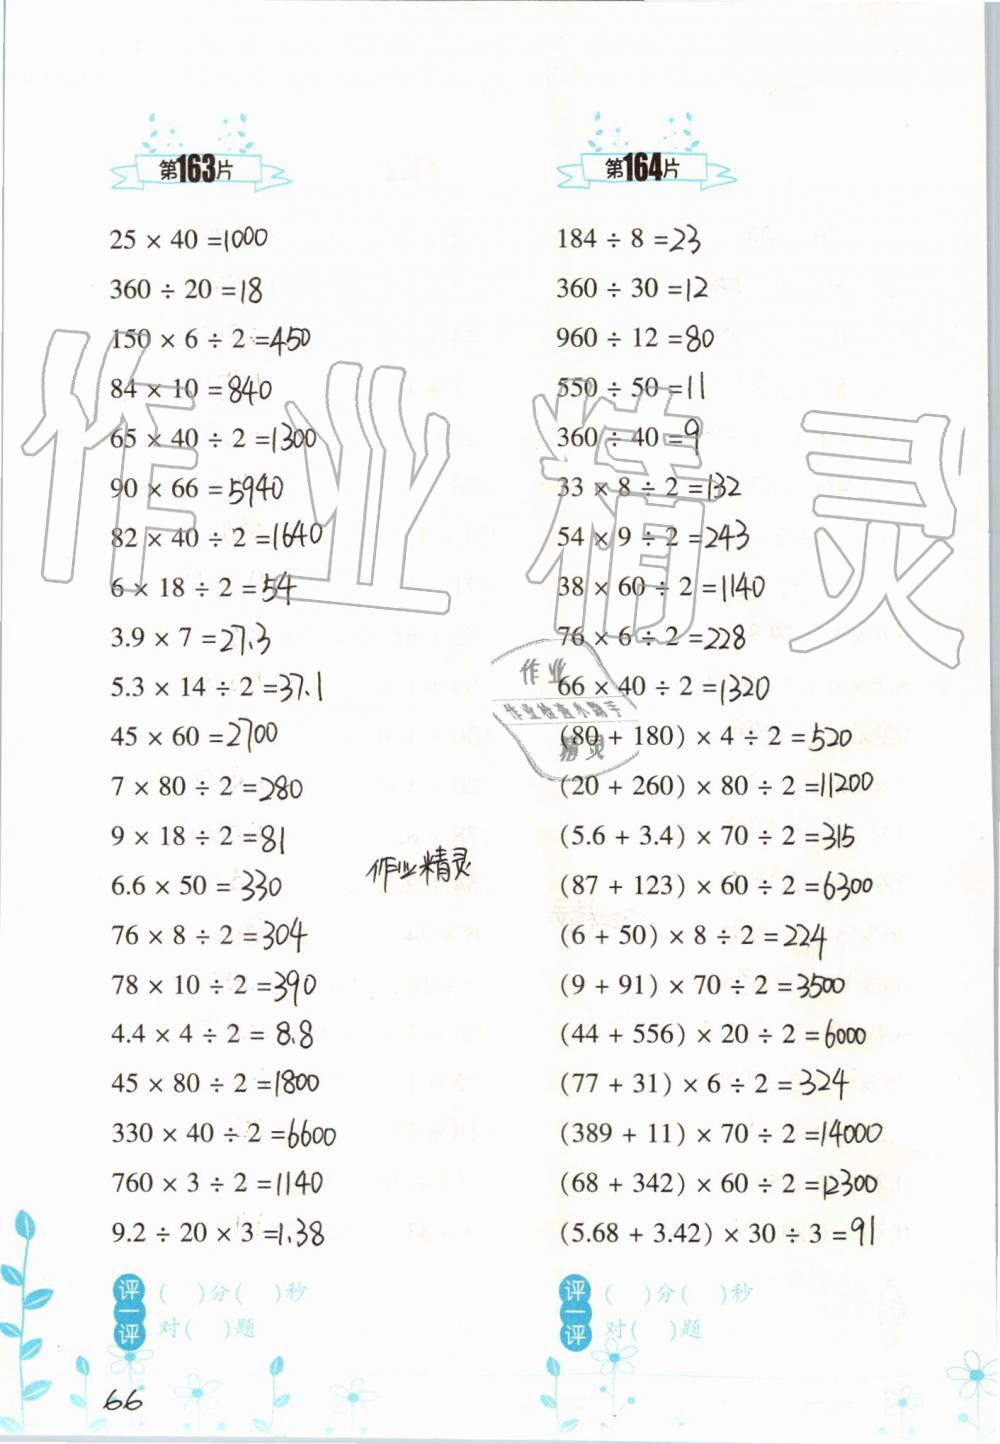 第163片
25 × 40 =1000
360 ÷ 20 =18
150 × 6 ÷ 2 =450
84 × 10 =840
65 × 40 ÷ 2 =1300
90 × 66 =5940
82 × 40 ÷ 2 =1640
6 × 18 ÷ 2 =54
3.9 × 7 =27.3
5.3 × 14 ÷ 2 =37.1
45 × 60 =2700
7 × 80 ÷ 2 =280
9 × 18 ÷ 2 =81
6.6 × 50 =330
76 × 8 ÷ 2 =304
78 × 10 ÷ 2 =390
4.4 × 4 ÷ 2 = 8.8
45 × 80 ÷ 2 =1800
330 × 40 ÷ 2 =6600
760 × 3 ÷ 2 =1140
9.2 ÷ 20 × 3 =1.38
评一评
( )分( )秒
对( )题
66
第164片
184 ÷ 8 =23
360 ÷ 30 =12
960 ÷ 12 =80
550 ÷ 50 =11
360 ÷ 40 =9
33 × 8 ÷ 2 =132
54 × 9 ÷ 2 =243
38 × 60 ÷ 2 =1140
76 × 6 ÷ 2 =228
66 × 40 ÷ 2 =1320
(80 + 180) × 4 ÷ 2 =520
(20 + 260) × 80 ÷ 2 =11200
(5.6 + 3.4) × 70 ÷ 2 =315
(87 + 123) × 60 ÷ 2 =6300
(6 + 50) × 8 ÷ 2 =224
(9 + 91) × 70 ÷ 2 =3500
(44 + 556) × 20 ÷ 2 =6000
(77 + 31) × 6 ÷ 2 =324
(389 + 11) × 70 ÷ 2 =14000
(68 + 342) × 60 ÷ 2 =12300
(5.68 + 3.42) × 30 ÷ 3 =91
评一评
( )分( )秒
对( )题
作业精灵
作业
作业检查小助手
精灵
作业精灵